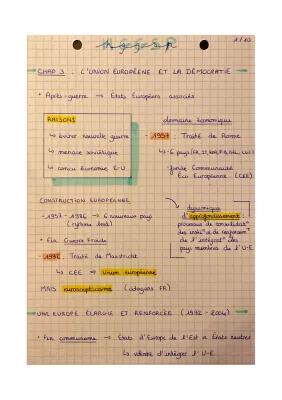 HGGSP
1/10
CHAP 3 : L'UNION EUROPÉENE ET LA DÉMOCRATIE
• Après-guerre → États Européens associés
RAISONS
↳ éviter nouvelle guerre
↳ menace soviétique
↳ concu économie E-U
domaine économique
• 1957 : Traité de Rome
↳ 6 pays
↳ fonde Communauté
Éco Européenne (CEE)
CONSTRUCTION EUROPÉENNE
- 1957 - 1986 → 6 nouveaux pays
• Fin Guerre Froide
: Traité de Maastricht
↳ CEE → Union européenne
MAIS euroscepticisme (citoyens FR)
dynamique
d'approfondissement :
processus de consolidat°
et de renforcem^t
de l'intégrat° des
pays membres de l'U-E
UNE EUROPE ÉLARGIE ET RENFORCÉE (1992 - 2004)
• Fin communisme → États d'Europe de l'Est et États neutres
↳ volonté d'intégrer l'U-E